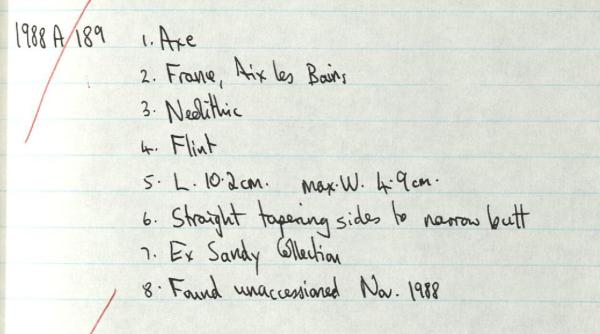 1988 A/189 1. Axe
2. France, Aix les Bains
3. Neolithic
4. Flint
5. L. 10.2cm. max.W. 4.9cm.
6. Straight tapering sides to narrow butt
7. Ex Sandy Collection
8. Found unaccessioned Nov. 1988